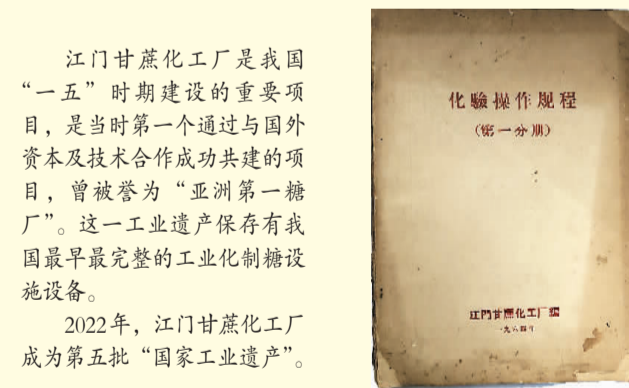 江门甘蔗化工厂是我国
“一五”时期建设的重要项
目，是当时第一个通过与国外
资本及技术合作成功共建的项
目，曾被誉为“亚洲第一糖
厂”。这一工业遗产保存有我
国最早最完整的工业化制糖设
施设备。
2022年，江门甘蔗化工厂
成为第五批“国家工业遗产”。
化驗操作规程
(第一分册)
江门甘蔗化工厂编
一九六四年